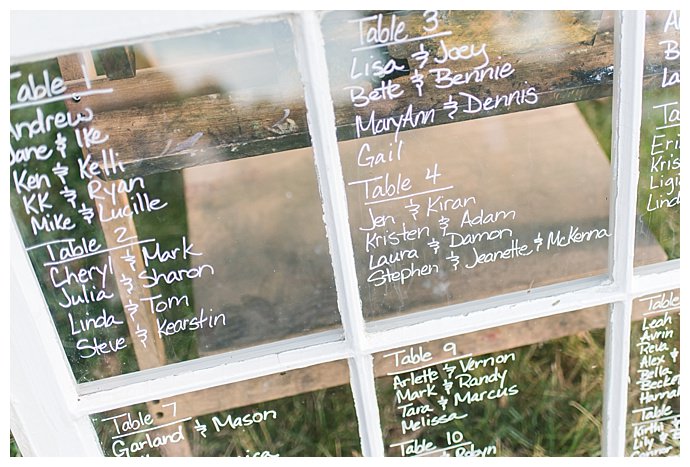 Table 1
Andrew
Jane & Ike
Ken & Kelli
KK & Ryan
Mike & Lucille
Table 2
Cheryl & Mark
Julia & Sharon
Linda & Tom
Steve & Kearstin
Table 3
Lisa & Joey
Bette & Bennie
MaryAnn & Dennis
Gail
Table 4
Jen & Kiran
Kristen & Adam
Laura & Damon
Stephen & Jeanette & McKenna
Table 7
Garland & Mason
Table 9
Arlette & Vernon
Mark & Randy
Tara & Marcus
Melissa
Table 10
& Robyn
Table
Leah
Avrin
Reva
Alex &
Bella
Becker
Hannah
Table
Kirthi
Lily &
Connor